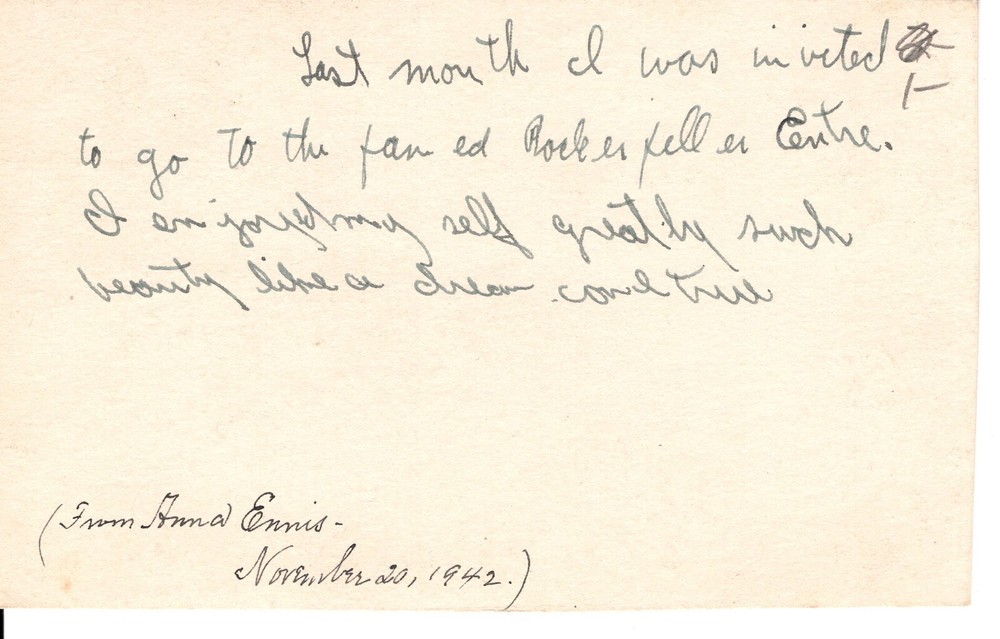 Last month I was invited
to go to the famed Rockerfeller Centre.
I enjoyed my self greatly such
beauty like a dream come true
(From Anna Ennis -
November 20, 1942.)